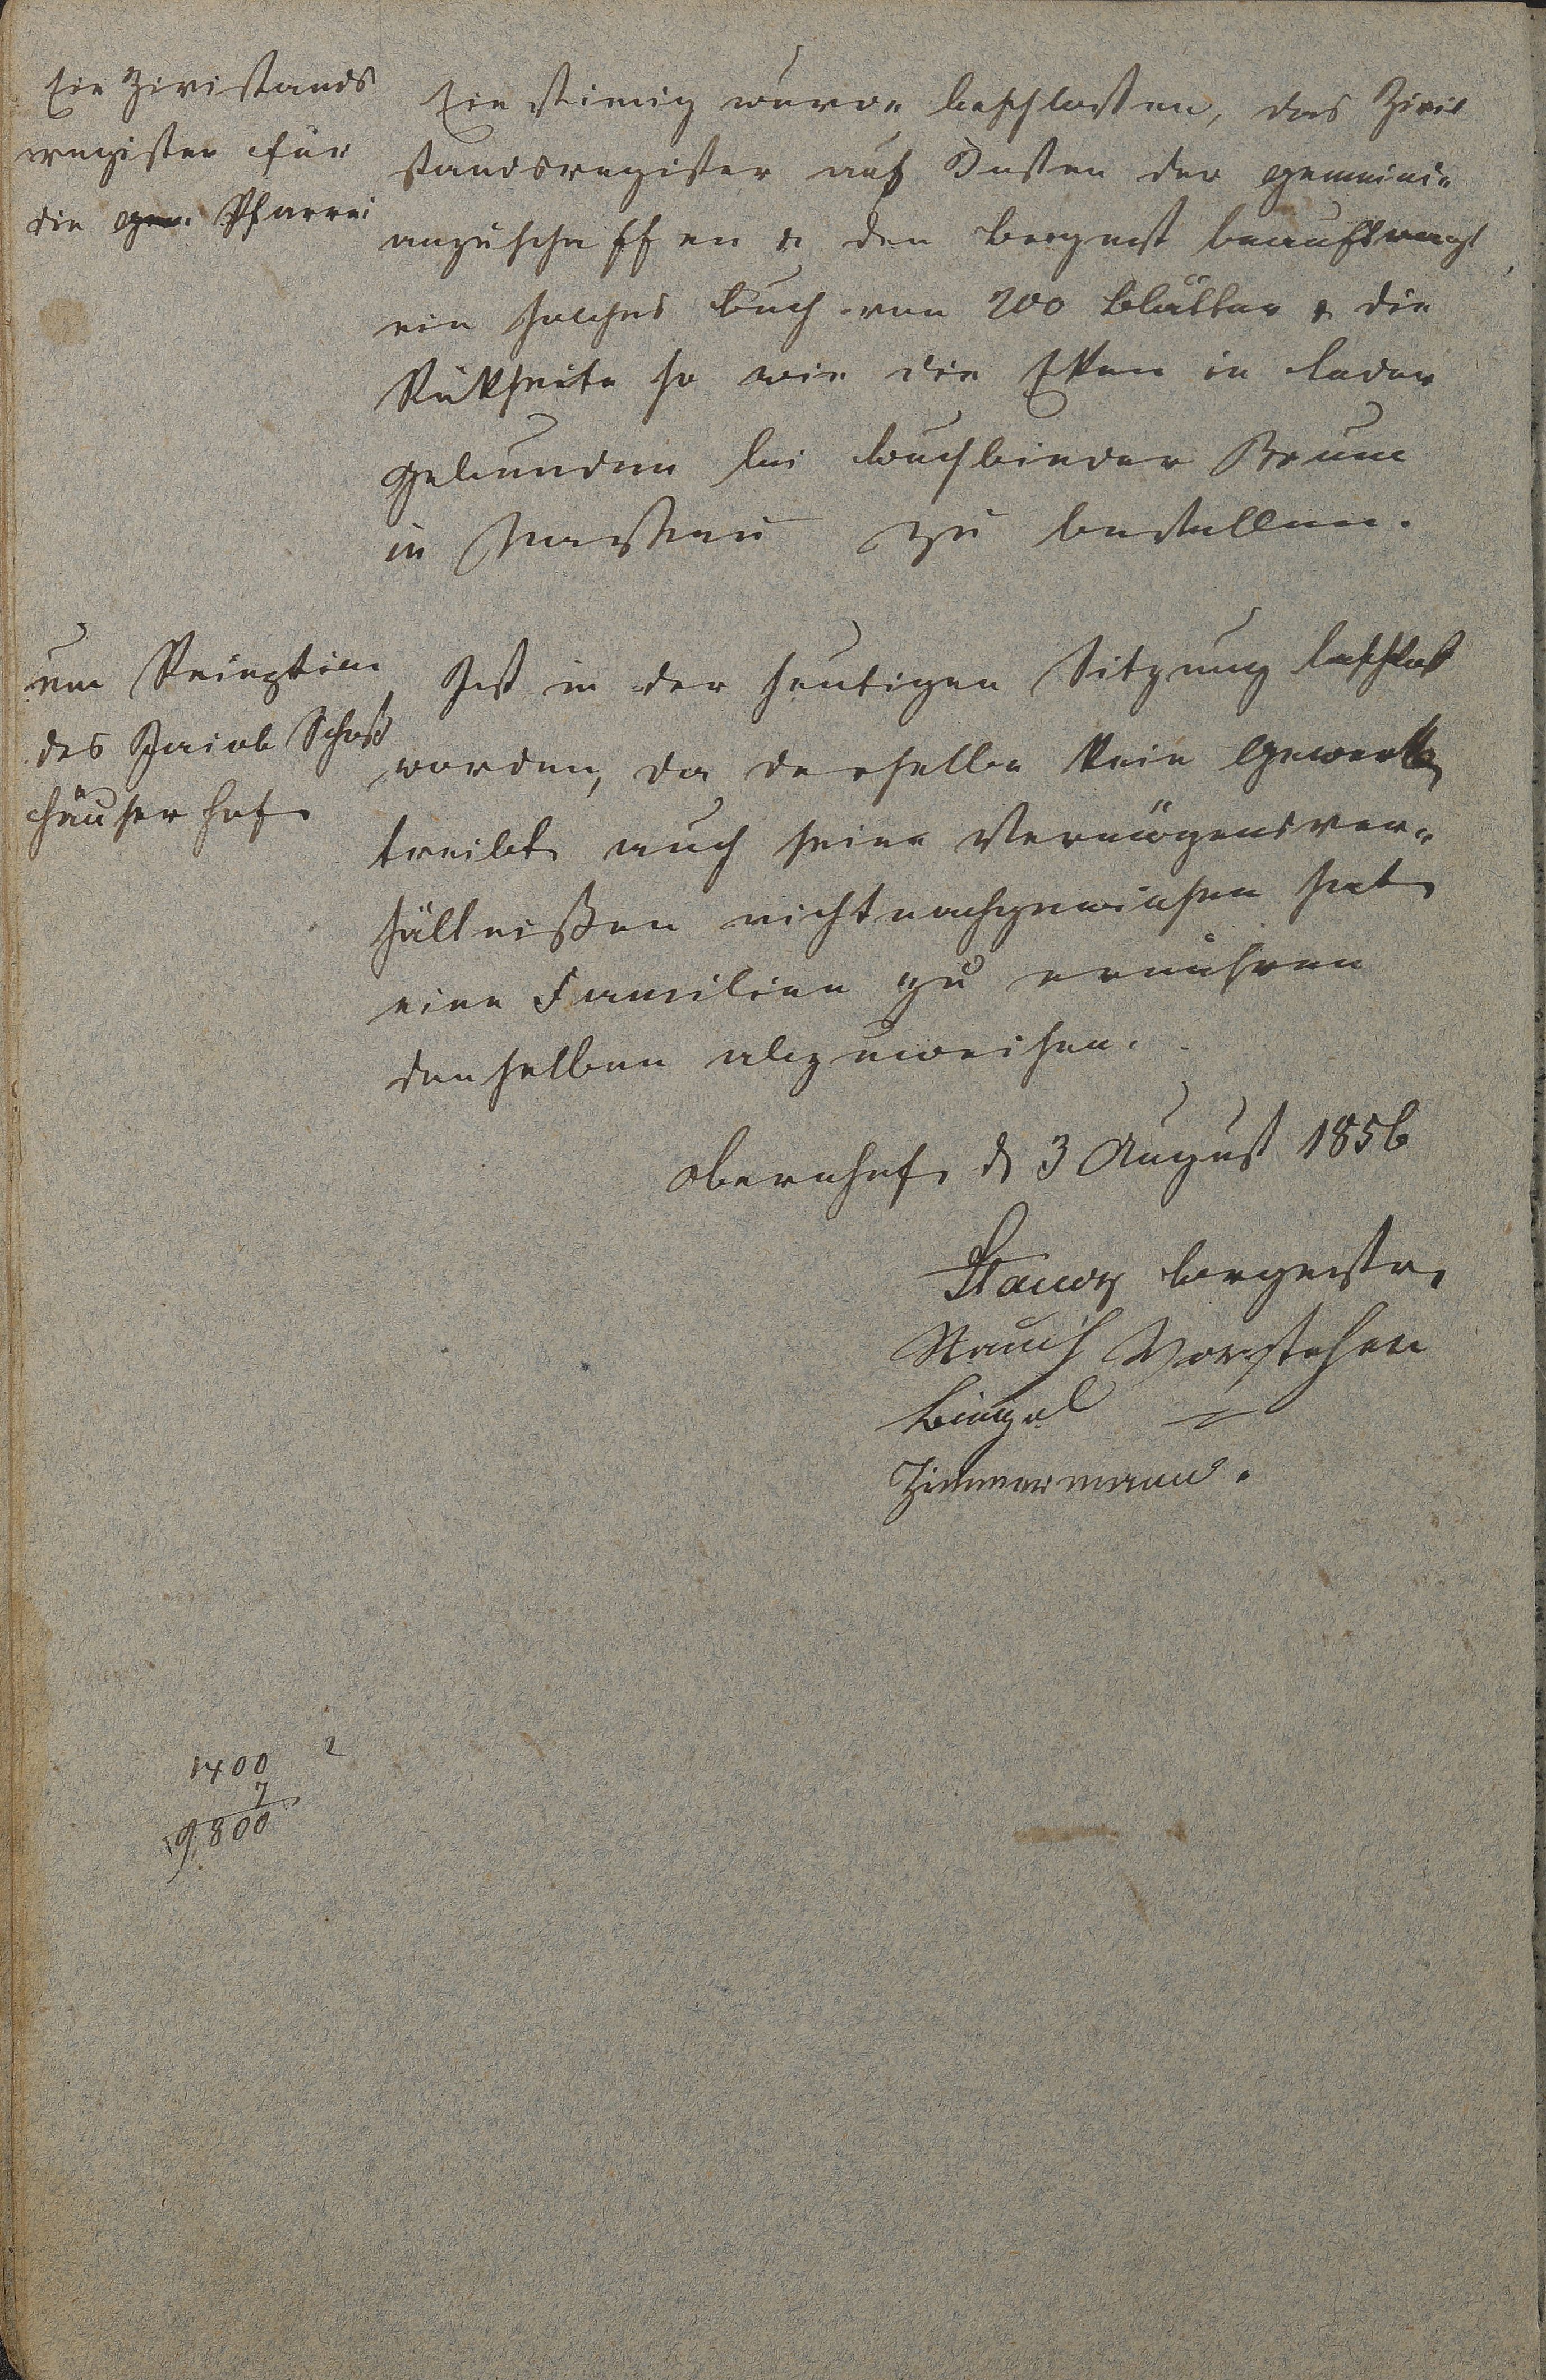 Ein Zivistands
register für
die Pfarrei
Ein stimig wurde beschlossen, das Zivil
standsregister auf Kosten der gemeinde
anzuschaffen & den bürgmst beauftragt
ein solches buch von 200 blätter & die
Rükseite so wie die Ekken in leder
gebunden bei buchbinder Brum
in Nassau zu bestellen.
um Rezeption
des Jacob Schaf
häuser hof
Ist in der heutigen Sitzung beschloß
worden, da derselbe kein gewerb
treibt auch seine Vermögensver-
hältnißen nicht nachgewiesen hat
eine Familien zu ernähren
denselben abzuweisen.
Obernhof d 3 August 1856
bürgmstr
Rauch Vorsteher
Bingel "
Zimmermann.
1400 2
7
9800